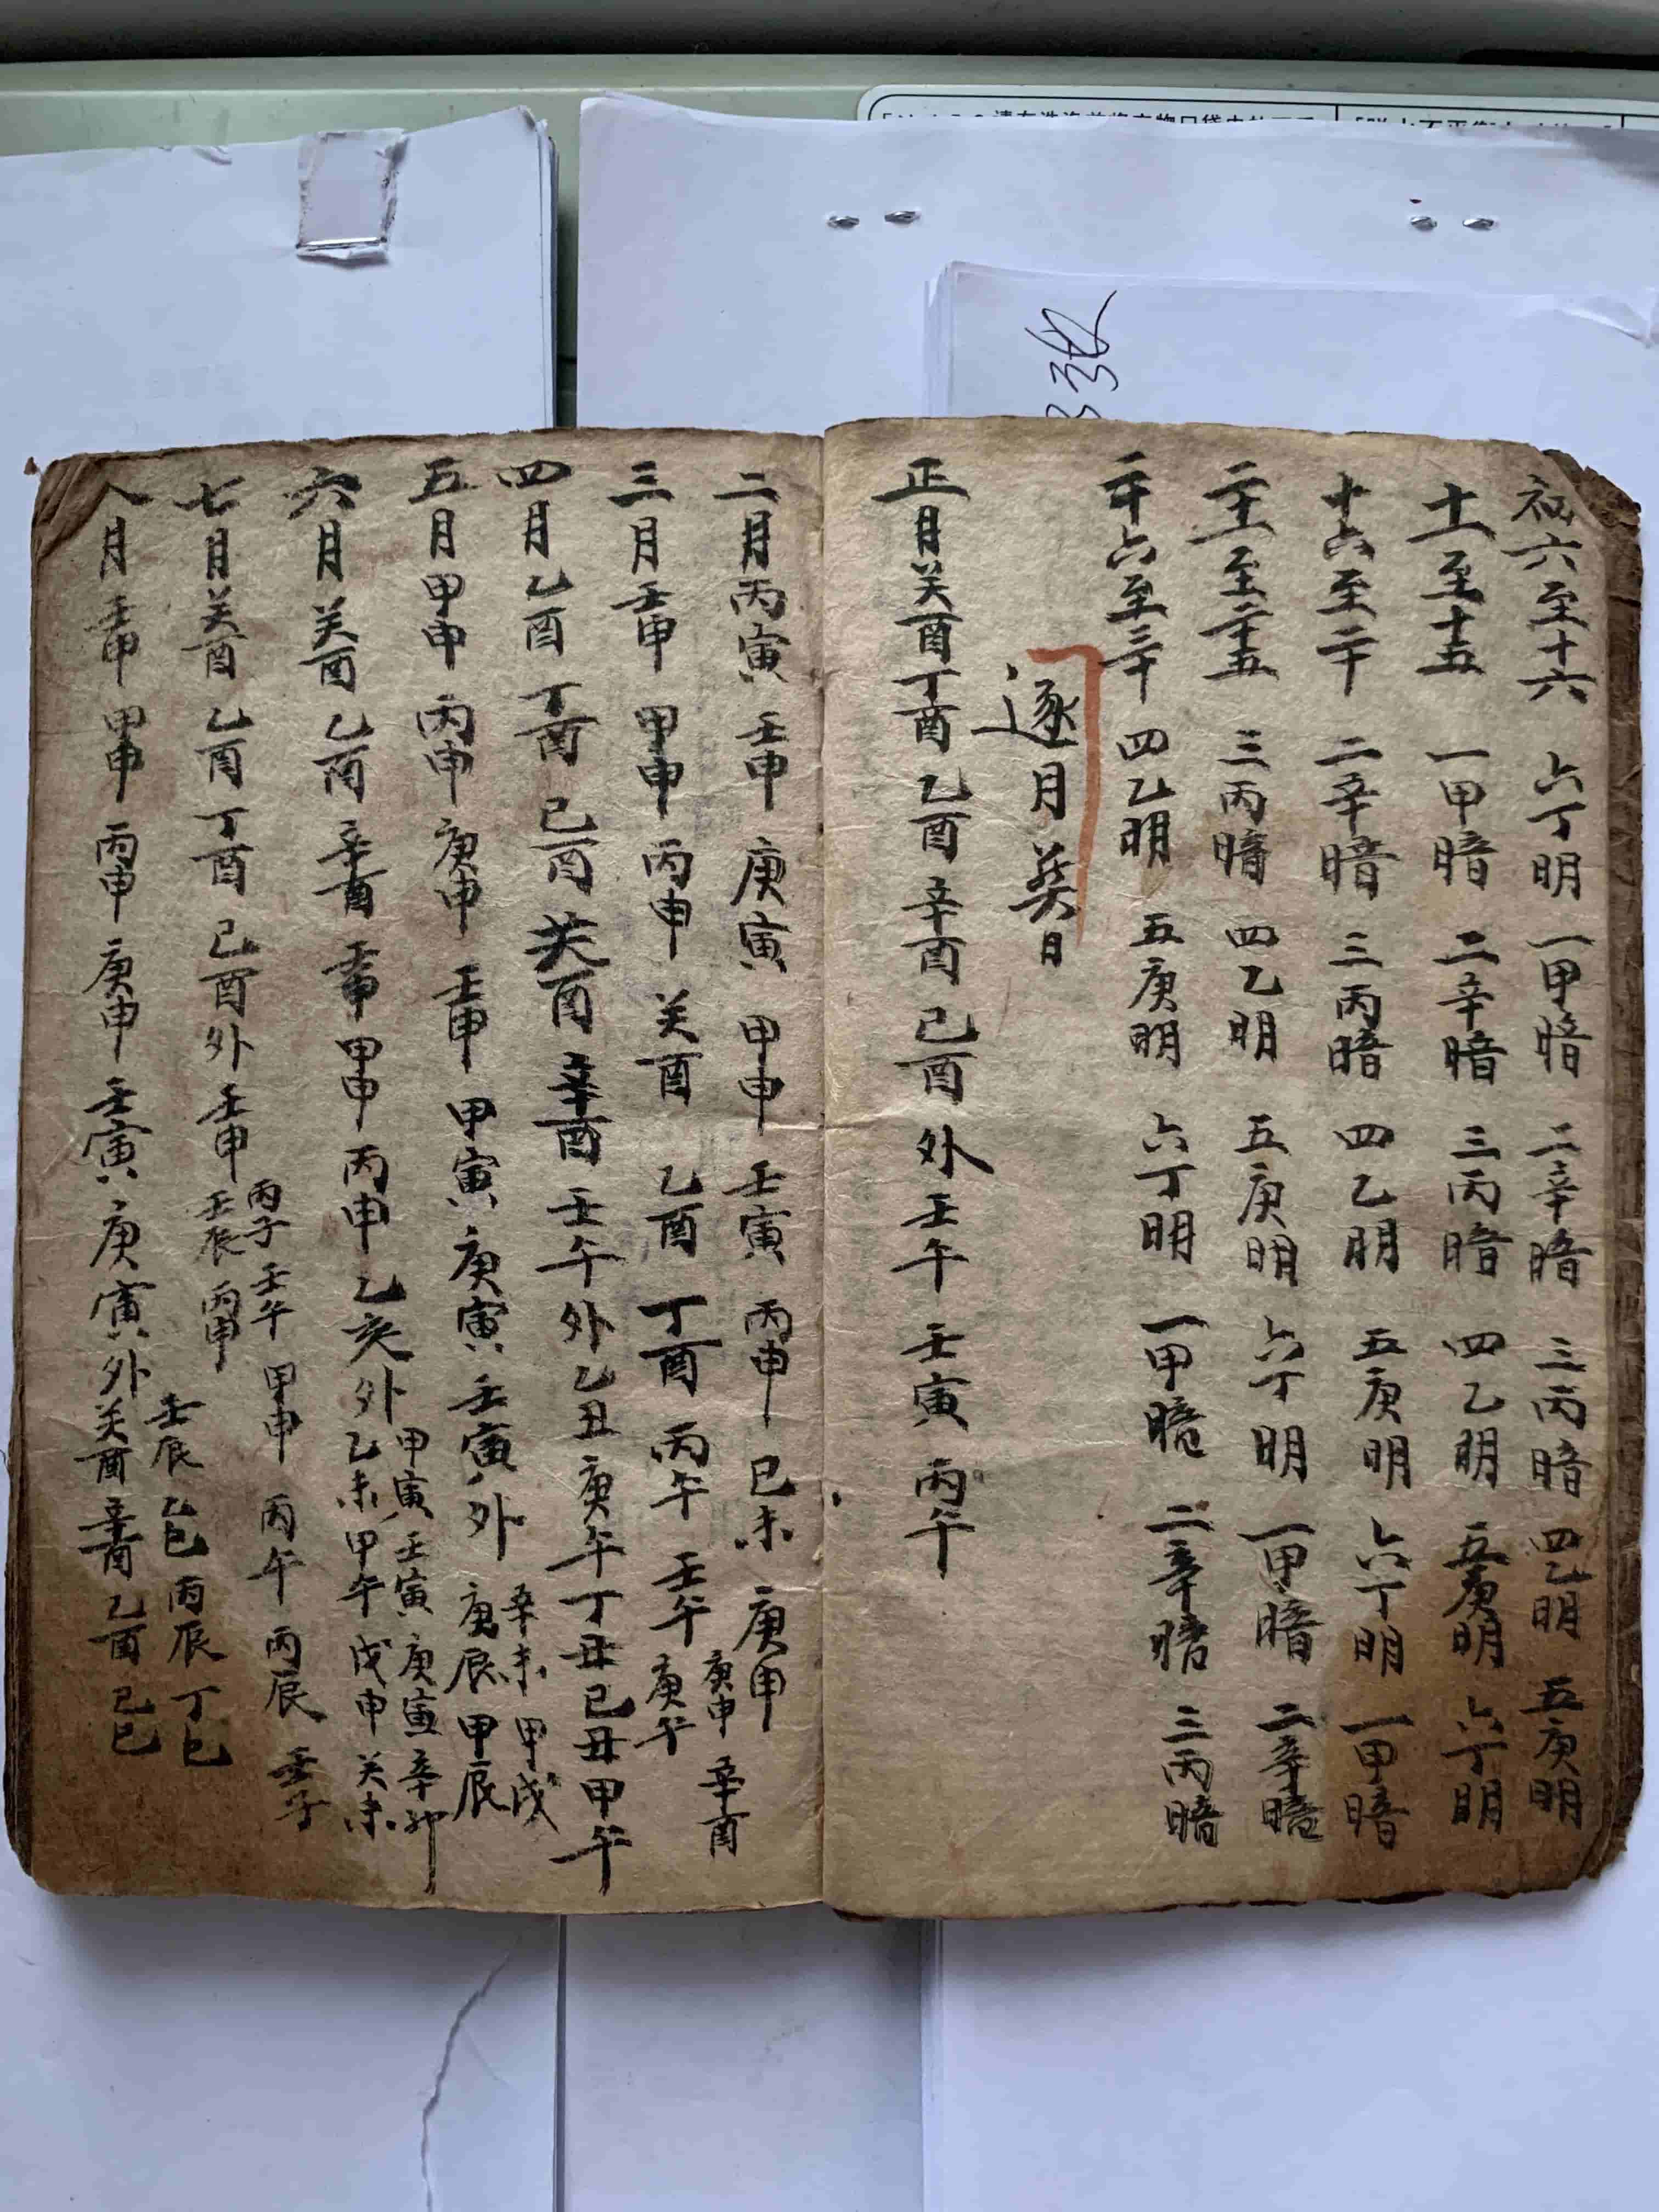 初六至十六 六丁明 一甲暗 二辛暗 三丙暗 四乙明 五庚明
十一至十五 一甲暗 二辛暗 三丙暗 四乙明 五庚明 六丁明
十六至二十 二辛暗 三丙暗 四乙明 五庚明 六丁明 一甲暗
二十一至二十五 三丙暗 四乙明 五庚明 六丁明 一甲暗 二辛暗
二十六至三十 四乙明 五庚明 六丁明 一甲暗 二辛暗 三丙暗
逐月葬日
正月癸酉 丁酉 乙酉 辛酉 己酉 外 壬午 壬寅 丙午
二月丙寅 壬申 庚寅 甲申 壬寅 丙申 己未 庚申
三月壬申 甲申 丙申 癸酉 乙酉 丁酉 丙午 壬午 庚申 辛酉 庚午
四月乙酉 丁酉 己酉 癸酉 辛酉 壬午 外 乙丑 庚午 丁丑 己丑 甲午
五月甲申 丙申 庚申 壬申 甲寅 庚寅 壬寅 外 辛未 甲戌 庚辰 甲辰
六月癸酉 乙酉 辛酉 壬申 甲申 丙申 乙亥 外 甲寅 壬寅 庚寅 辛卯 乙未 甲午 戊申 癸未
七月癸酉 乙酉 丁酉 己酉 外 壬申 丙子 壬午 甲申 丙午 丙辰 壬子 壬辰 丙申
八月壬申 甲申 丙申 庚申 壬寅 庚寅 外 壬辰 乙巳 丙辰 丁巳 癸酉 辛酉 乙酉 己巳